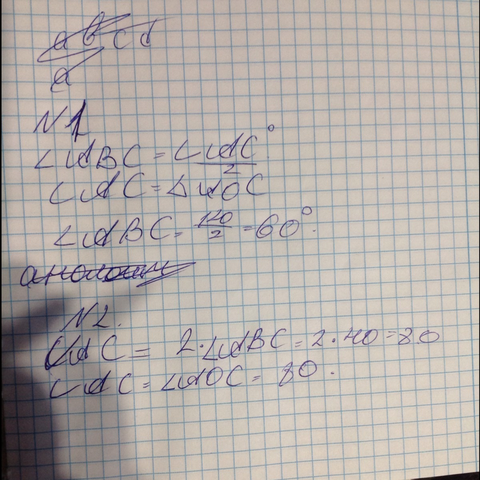 abcd
a
N1
∠ABC = ∠AC°/2
∠AC = ∠AOC
∠ABC = 120/2 = 60°.
N2.
∠AC = 2·∠ABC = 2·40 = 80
∠AC = ∠AOC = 80.